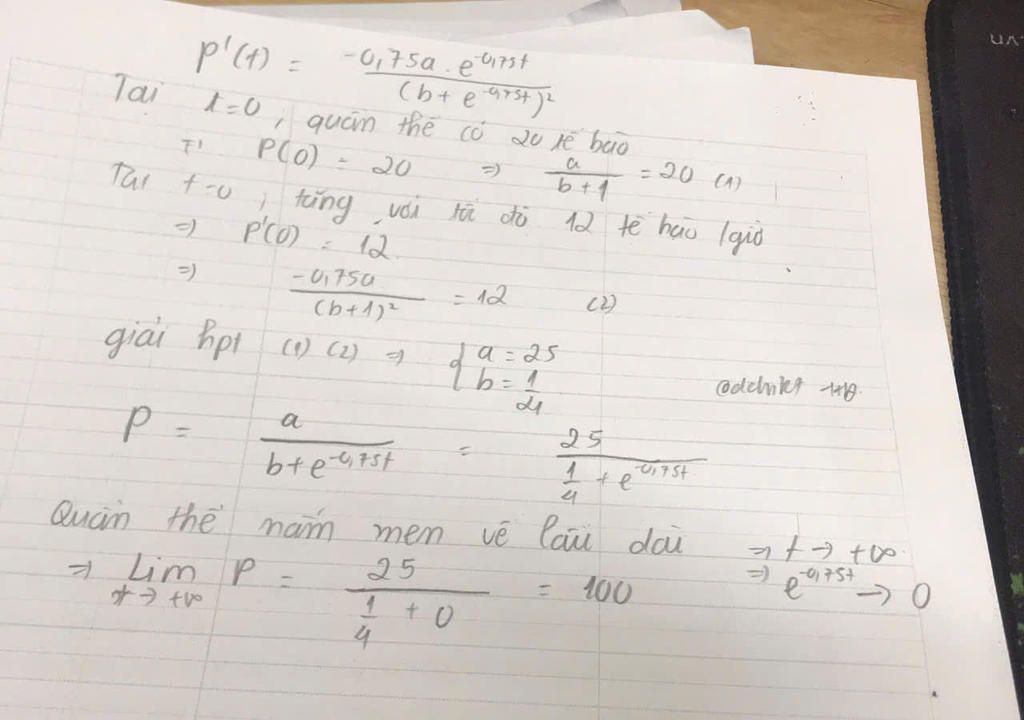 P'(t) = -0,75a . e^-0,75t / (b + e^-0,75t)²
Tại t=0, quần thể có 20 tế bào
P(0) = 20 => a / (b+1) = 20 (1)
Tại t=0, tăng với tốc độ 12 tế bào/giờ
=> P'(0) = 12
=> -0,75a / (b+1)² = 12 (2)
giải hpt (1) (2) => { a = 25
b = 1/4
P = a / (b+e^-0,75t) = 25 / (1/4 + e^-0,75t)
Quần thể nấm men về lâu dài => t -> +∞
=> e^-0,75t -> 0
=> Lim t->+∞ P = 25 / (1/4 + 0) = 100